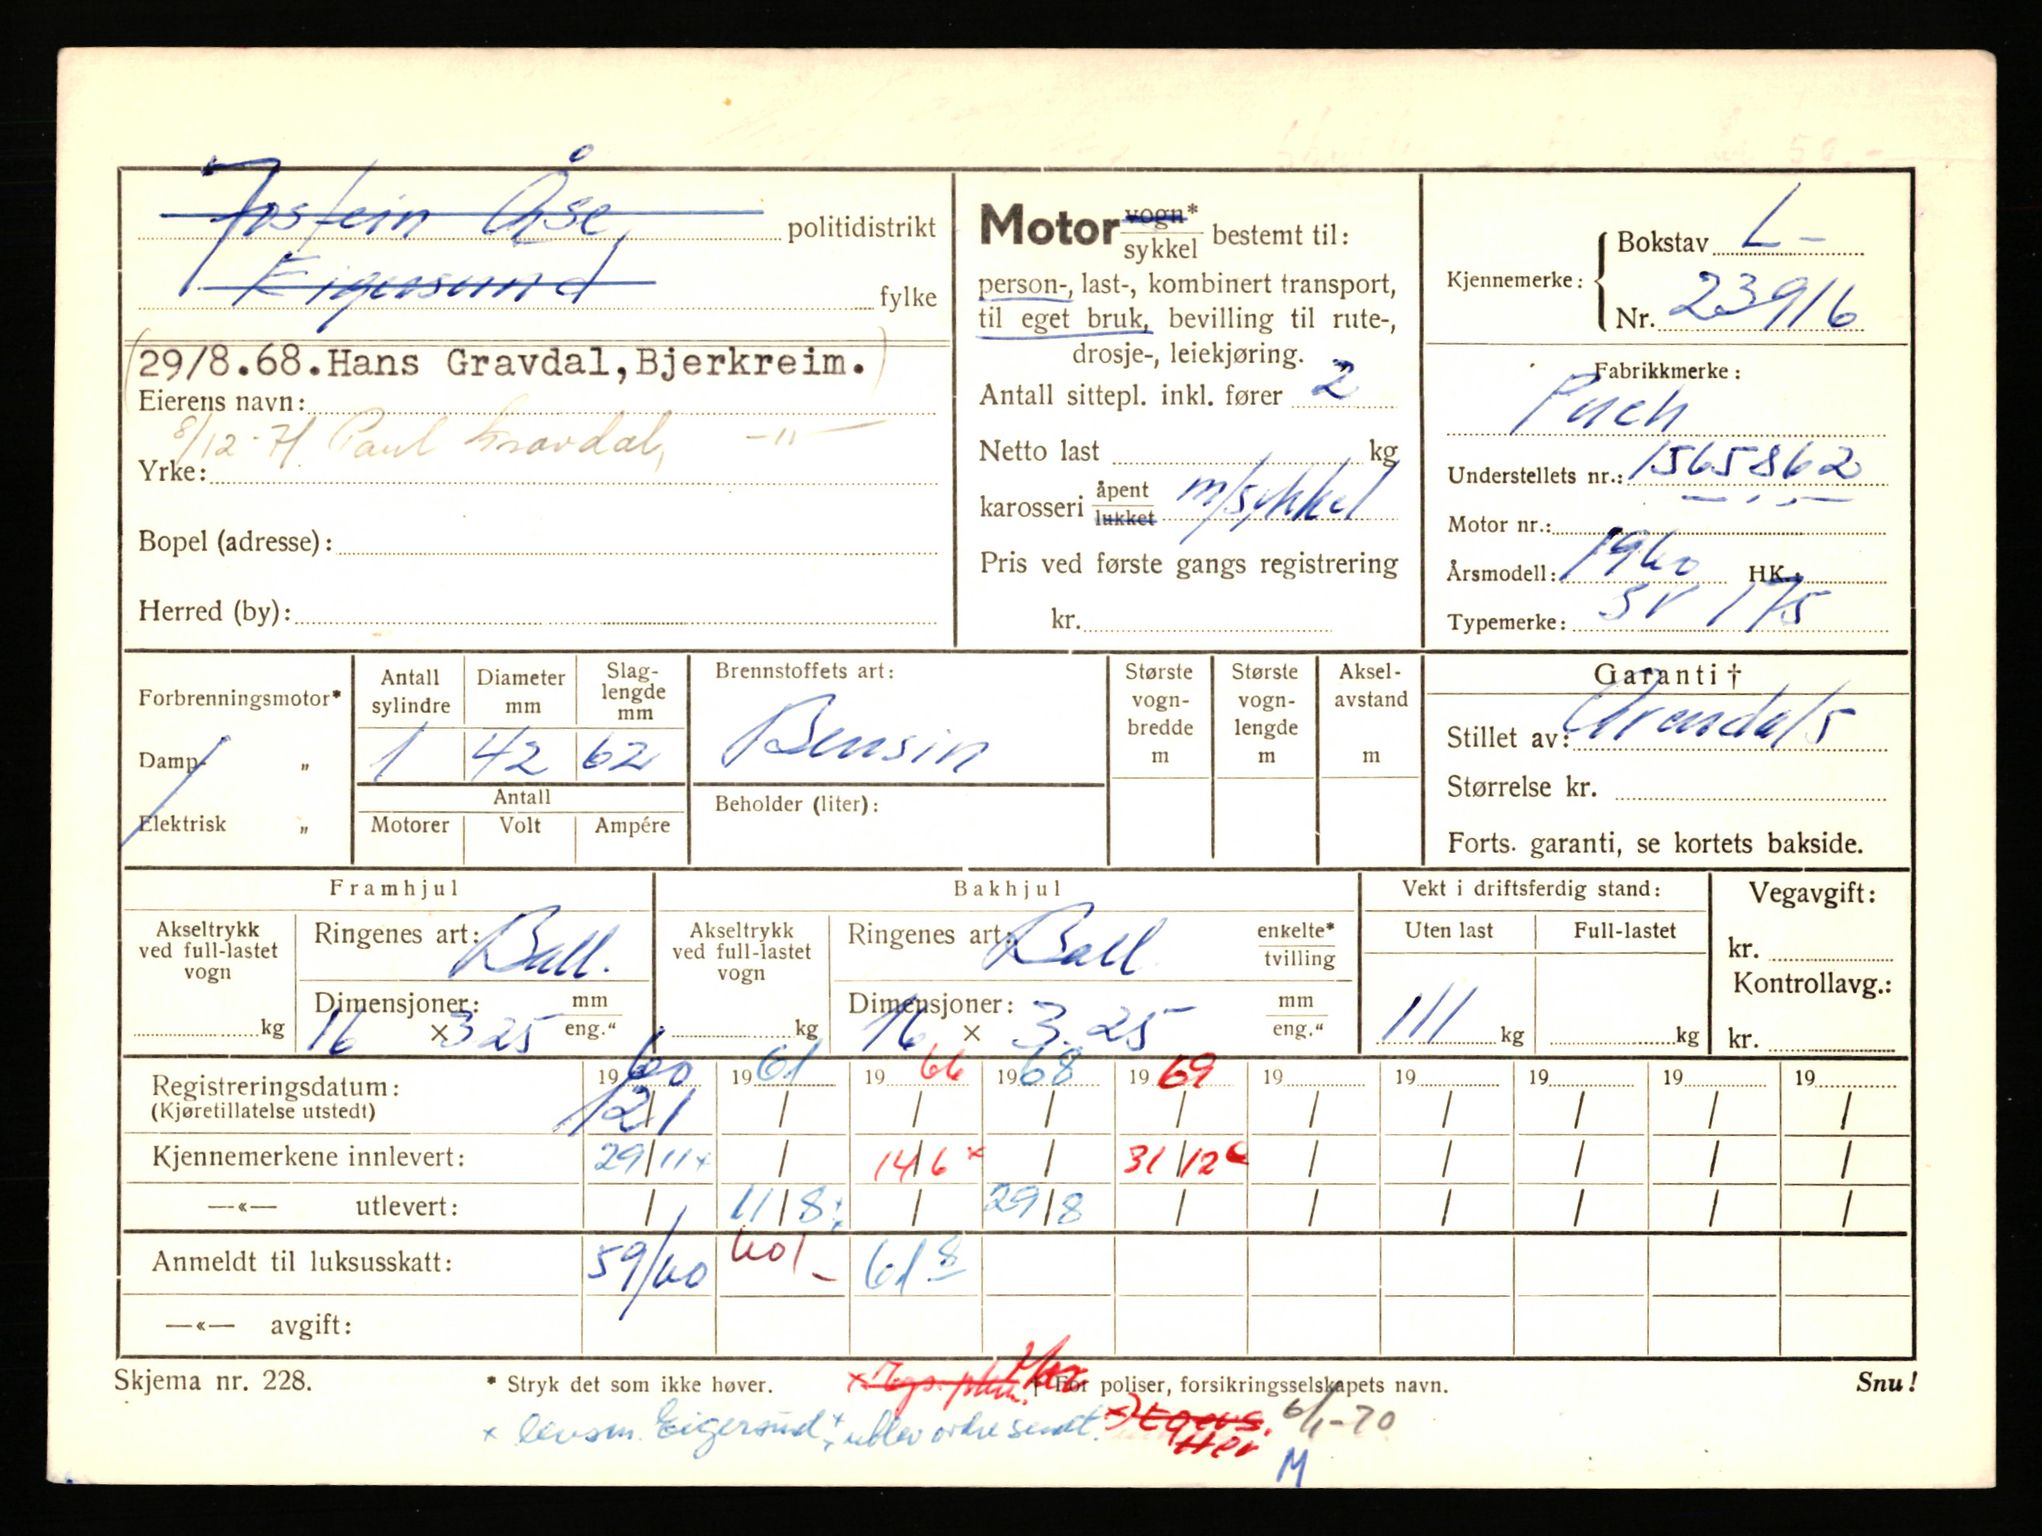 Jostein Åse, politidistrikt
Eigersund fylke
29/8.68. Hans Gravdal, Bjerkreim.
Eierens navn:
8/12-71 Paul Gravdal, -"-
Yrke:
Bopel (adresse):
Herred (by):
Motor vogn* sykkel bestemt til:
person-, last-, kombinert transport,
til eget bruk, bevilling til rute-,
drosje-, leiekjøring.
Antall sittepl. inkl. fører 2
Netto last kg
karosseri åpent lukket m/sykkel
Pris ved første gangs registrering
kr.
Kjennemerke: Bokstav L-
Nr. 23916
Fabrikkmerke:
Puch
Understellets nr.: 1565862
Motor nr.: -"-
Årsmodell: 1960 HK.:
Typemerke: SV 175
Forbrenningsmotor*
Damp- "
Elektrisk "
Antall sylindre 1
Diameter mm 42
Slaglengde mm 62
Antall
Motorer Volt Ampére
Brennstoffets art:
Bensin
Beholder (liter):
Største vognbredde m
Største vognlengde m
Akselavstand m
Garanti †
Stillet av: Arendals
Størrelse kr.
Forts. garanti, se kortets bakside.
Framhjul
Akseltrykk ved full-lastet vogn kg
Ringenes art: Ball.
Dimensjoner: mm eng."
16 × 325
Bakhjul
Akseltrykk ved full-lastet vogn kg
Ringenes art: Ball enkelte* tvilling
Dimensjoner: mm eng."
16 × 3.25
Vekt i driftsferdig stand:
Uten last Full-lastet
111 kg kg
Vegavgift:
kr.
Kontrollavg.:
kr.
Registreringsdatum: 1960 1961 1966 1968 1969 19 19 19 19 19
(Kjøretillatelse utstedt) 12/1 / / / / / / / / /
Kjennemerkene innlevert: 29/11x / 14/6x / 31/12 / / / / /
—«— utlevert: / 11/8 / 29/8 / / / / / /
Anmeldt til luksusskatt: 59/60 601- 61 8
—«— avgift:
Skjema nr. 228. * Stryk det som ikke høver. † For poliser, forsikringsselskapets navn. Snu!
x lensm. Eigersund x utlev ordre sendt. x) Egers. 6/1-70
Her
M